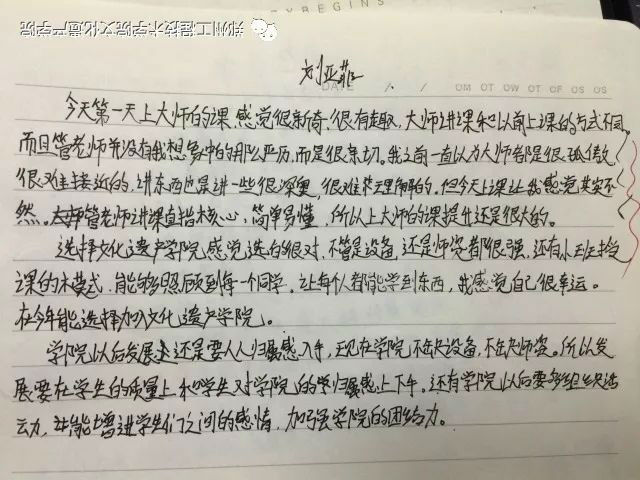 郑州工程技术学院文化遗产学院
YBEGINS
刘亚菲
DATE / /
MO TU WE TH FR SA SU
今天第一天上大师的课,感觉很新奇,很有趣,大师讲课和以前上课的方式不同,
而且管老师并没有我想象中的那么严厉,而是很亲切。我之前一直认为大师都是很孤傲,
很难接近的,讲东西也是讲一些很深奥,很难理解的,但今天上课让我感觉其实不
然。管老师讲课直指核心,简单易懂,所以上大师的课提升还是很大的。
选择文化遗产学院感觉选的很对,不管是设备,还是师资都很强,还有小班授
课的模式,能够照顾到每一个同学,让每个人都能学到东西,我感觉自己很幸运。
在今年能选择加入文化遗产学院。
学院以后发展还是要从人归属感入手,现在学院不缺设备,不缺师资。所以发
展要在学生的质量上和学生对学院的归属感上下手。还有学院以后要多组织活
动,并能增进学生们之间的感情,加强学院的团结力。